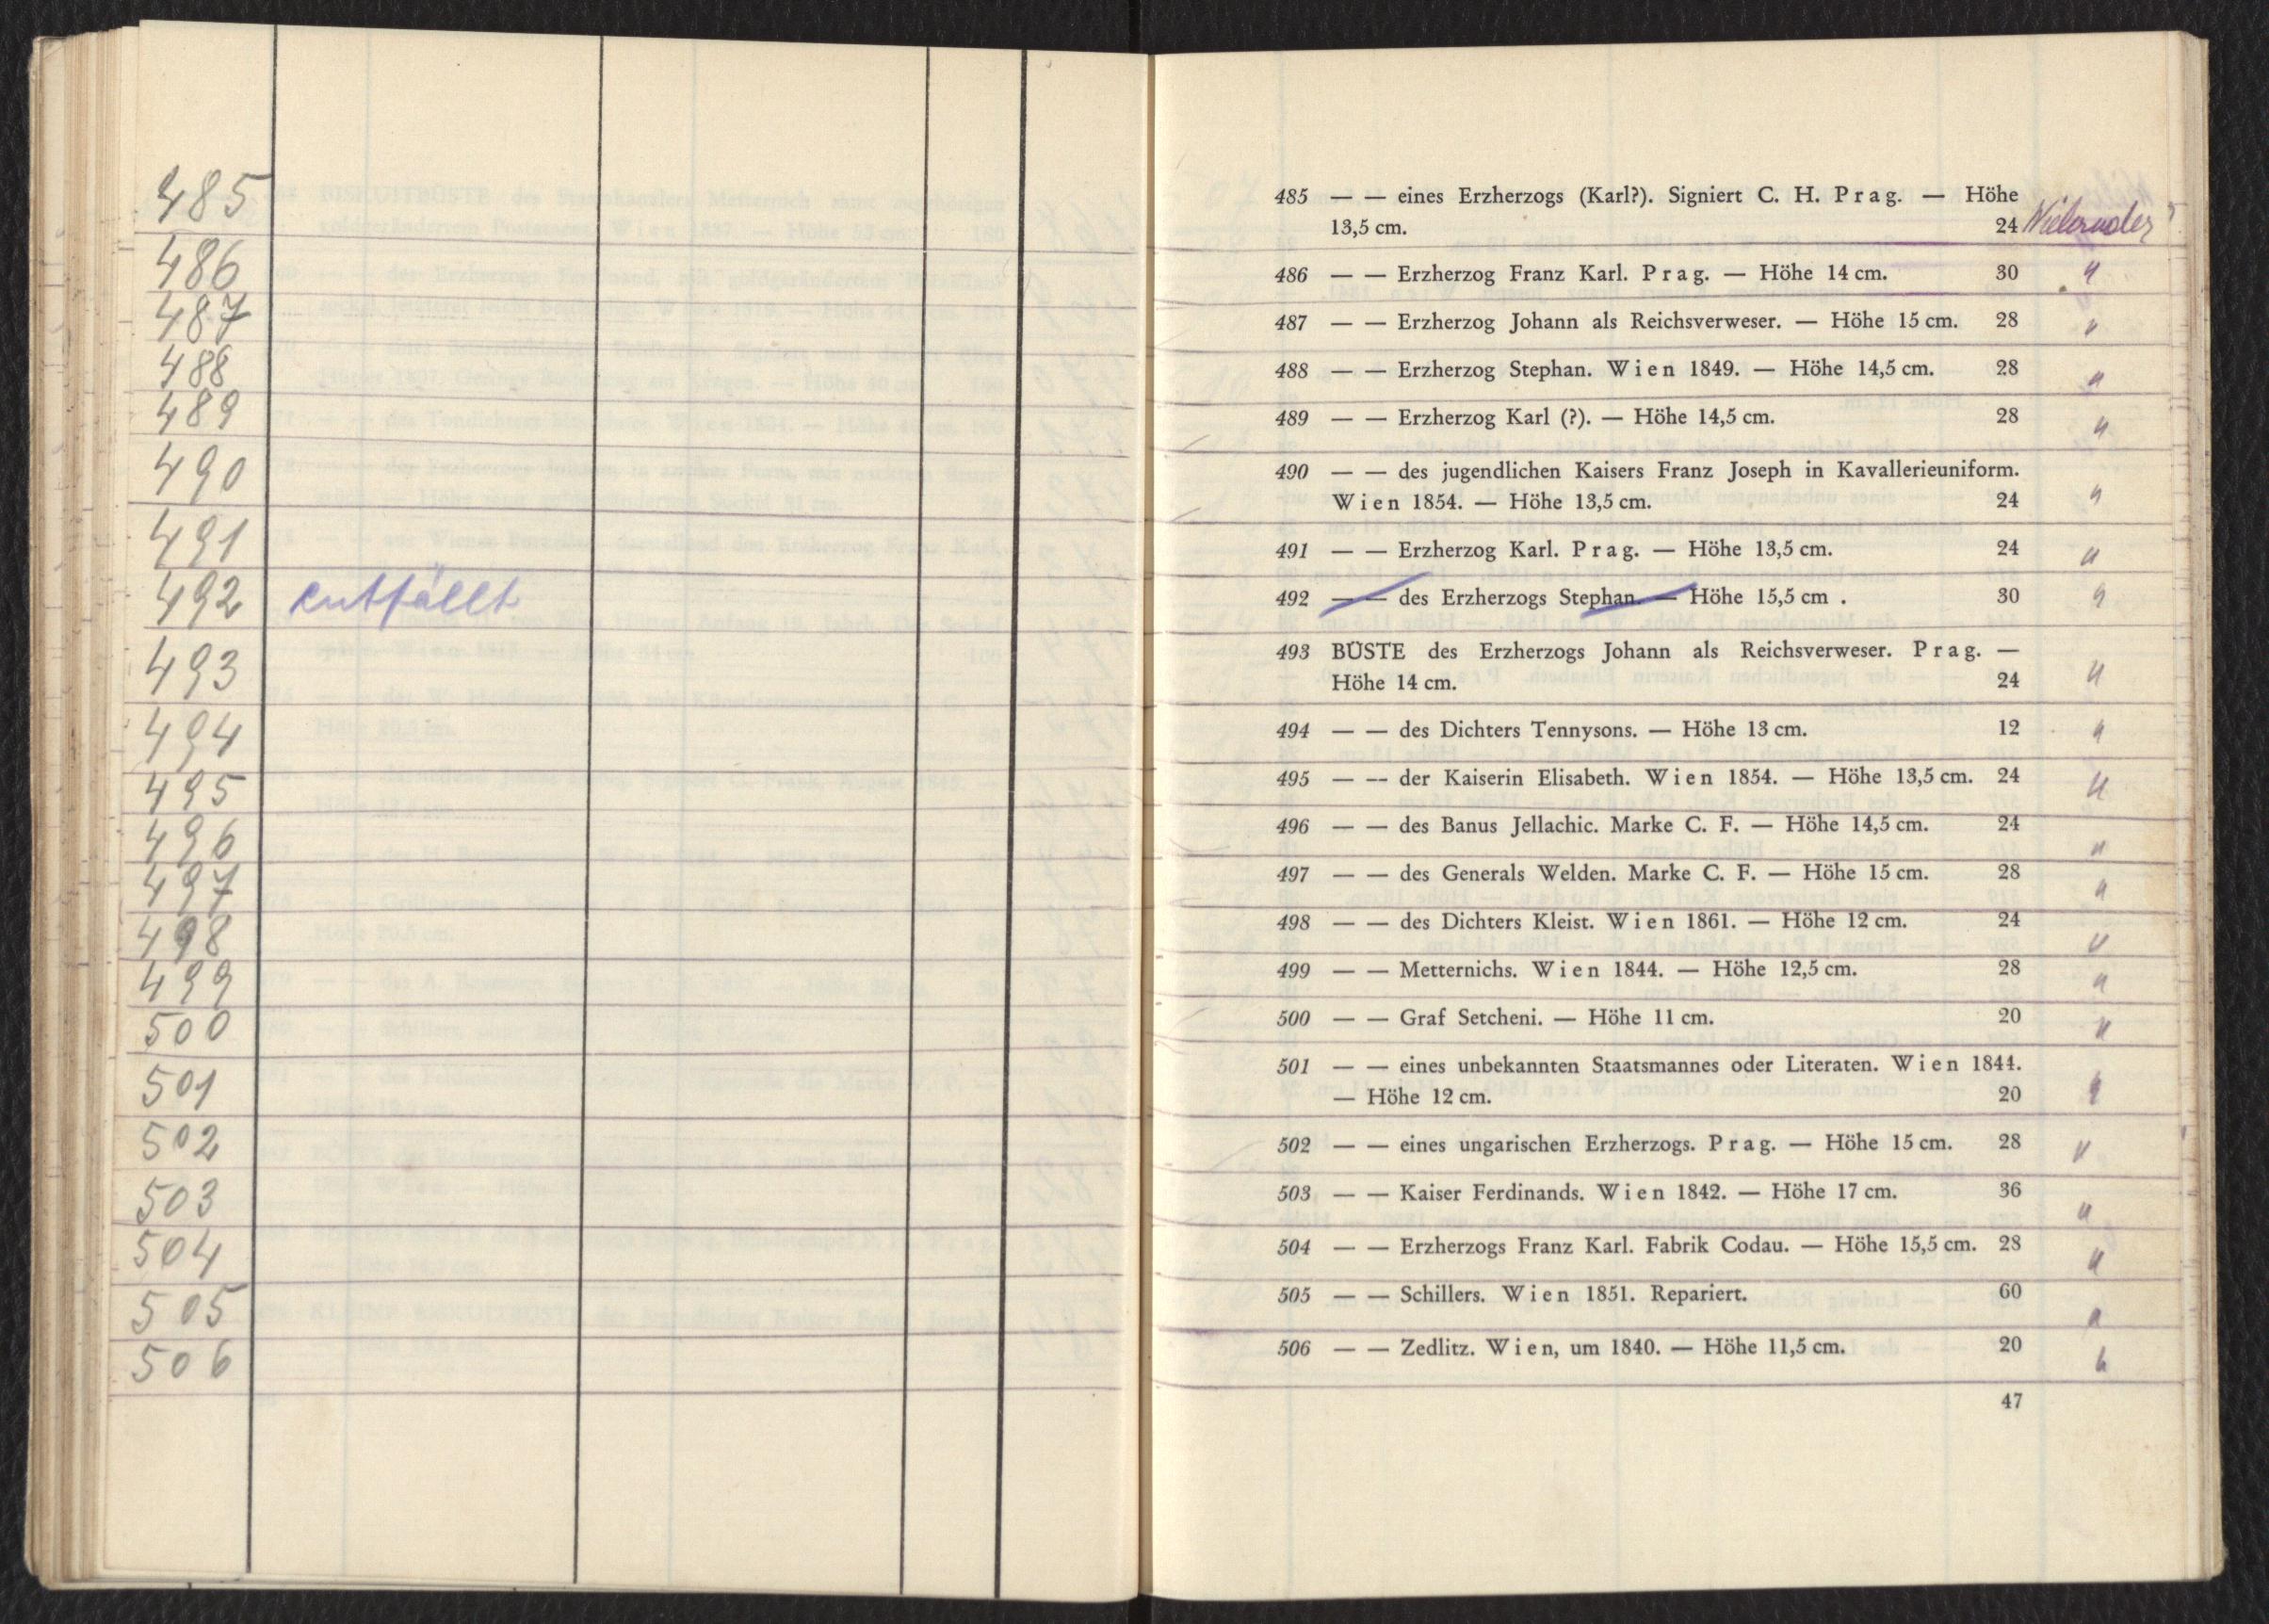 485
486
487
488
489
490
491
492 entfällt
493
494
495
496
497
498
499
500
501
502
503
504
505
506
485 — — eines Erzherzogs (Karl?). Signiert C. H. Prag. — Höhe
13,5 cm. 24
486 — — Erzherzog Franz Karl. Prag. — Höhe 14 cm. 30 "
487 — — Erzherzog Johann als Reichsverweser. — Höhe 15 cm. 28 "
488 — — Erzherzog Stephan. Wien 1849. — Höhe 14,5 cm. 28 "
489 — — Erzherzog Karl (?). — Höhe 14,5 cm. 28 "
490 — — des jugendlichen Kaisers Franz Joseph in Kavallerieuniform.
Wien 1854. — Höhe 13,5 cm. 24 "
491 — — Erzherzog Karl. Prag. — Höhe 13,5 cm. 24 "
492 — — des Erzherzogs Stephan. — Höhe 15,5 cm . 30 "
493 BÜSTE des Erzherzogs Johann als Reichsverweser. Prag. —
Höhe 14 cm. 24 "
494 — — des Dichters Tennysons. — Höhe 13 cm. 12 "
495 — -- der Kaiserin Elisabeth. Wien 1854. — Höhe 13,5 cm. 24 "
496 — — des Banus Jellachic. Marke C. F. — Höhe 14,5 cm. 24 "
497 — — des Generals Welden. Marke C. F. — Höhe 15 cm. 28 "
498 — — des Dichters Kleist. Wien 1861. — Höhe 12 cm. 24 "
499 — — Metternichs. Wien 1844. — Höhe 12,5 cm. 28 "
500 — — Graf Setcheni. — Höhe 11 cm. 20 "
501 — — eines unbekannten Staatsmannes oder Literaten. Wien 1844.
— Höhe 12 cm. 20 "
502 — — eines ungarischen Erzherzogs. Prag. — Höhe 15 cm. 28 "
503 — — Kaiser Ferdinands. Wien 1842. — Höhe 17 cm. 36 "
504 — — Erzherzogs Franz Karl. Fabrik Codau. — Höhe 15,5 cm. 28 "
505 — — Schillers. Wien 1851. Repariert. 60 "
506 — — Zedlitz. Wien, um 1840. — Höhe 11,5 cm. 20 "
47